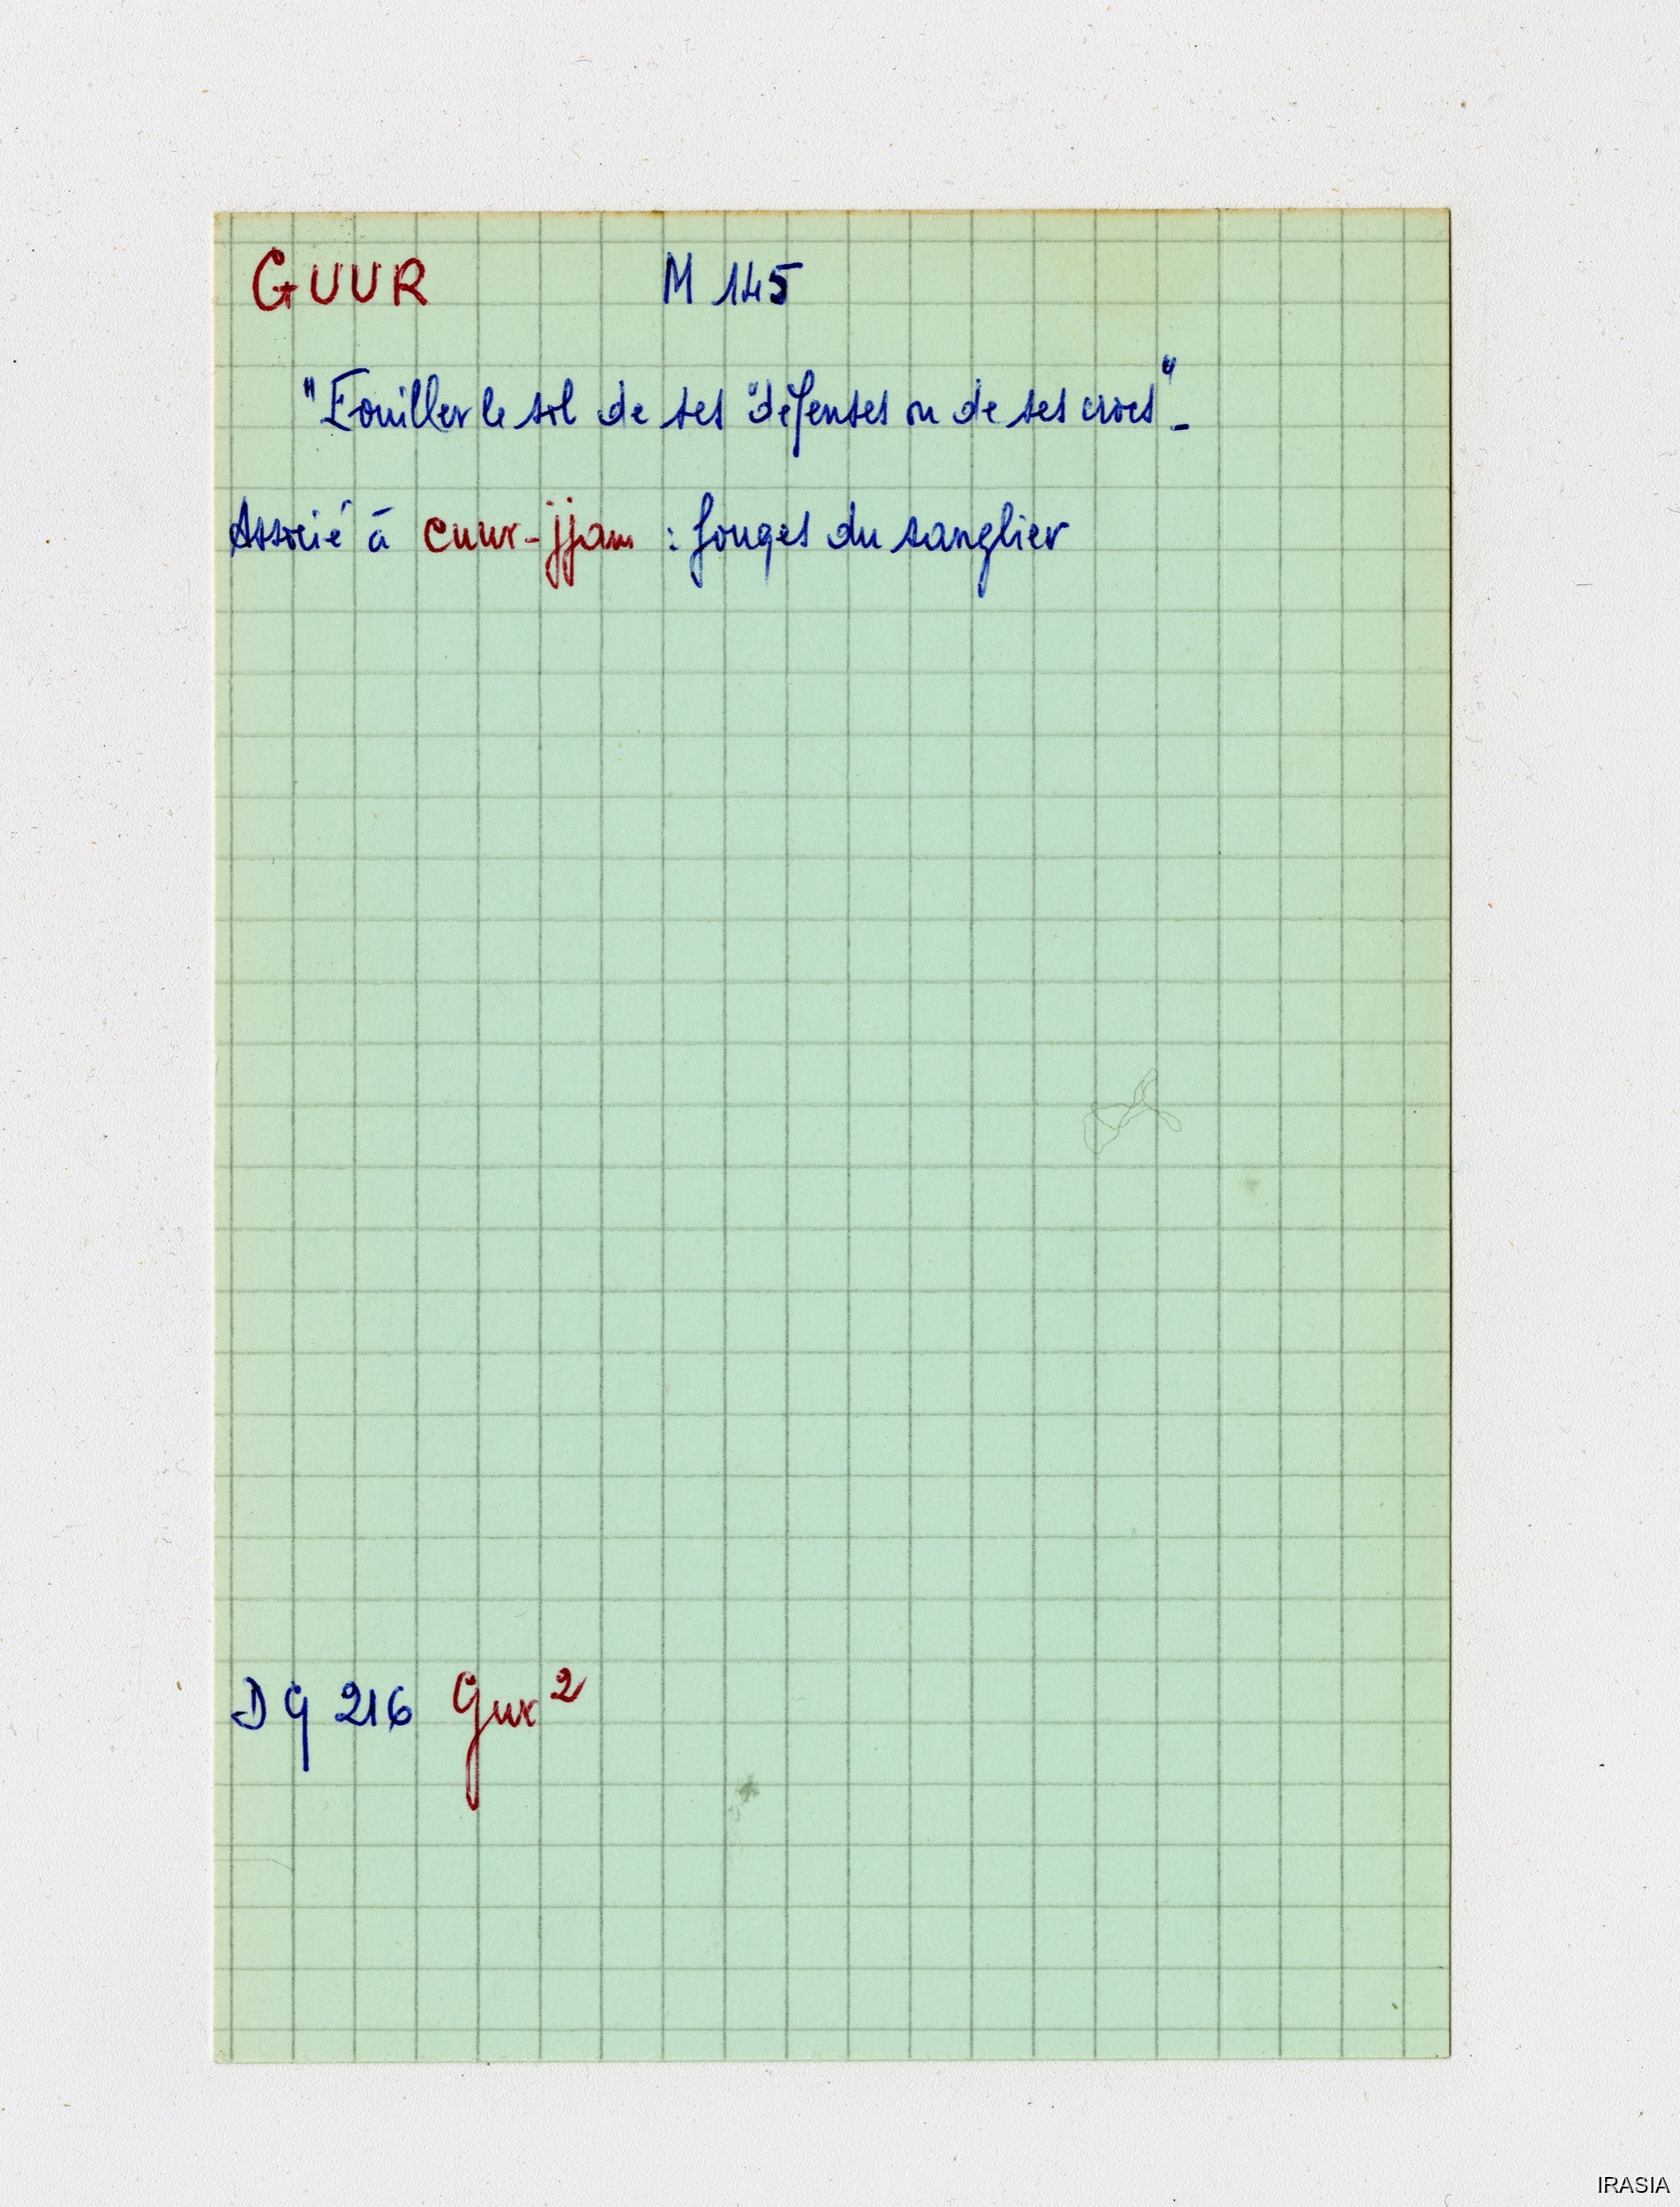 GUUR M 145
"Fouiller le sol de ses défenses ou de ses crocs"_
Associé à cuur-jjam : fouges du sanglier
DG 216 Gur²
IRASIA